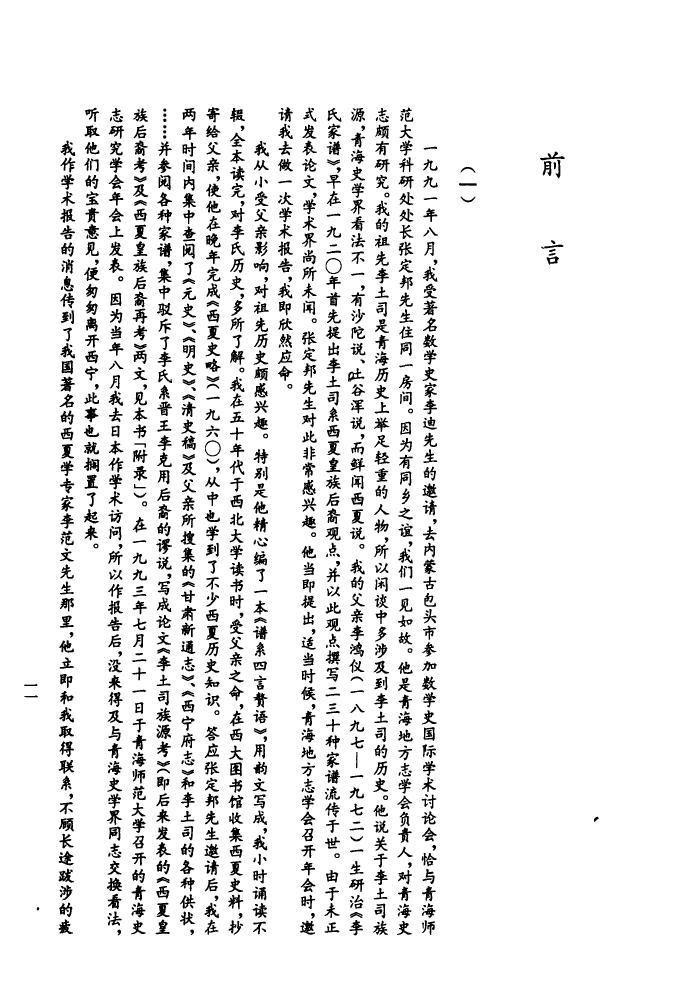 前言
(一)
一九九一年八月，我受著名数学史家李迪先生的邀请，去内蒙古包头市参加数学史国际学术讨论会，恰与青海师
范大学科研处处长张定邦先生住同一房间。因为有同乡之谊，我们一见如故。他是青海地方志学会负责人，对青海史
志颇有研究。我的祖先李土司是青海历史上举足轻重的人物，所以闲谈中多涉及到李土司的历史。他说关于李土司族
源，青海史学界看法不一，有沙陀说、吐谷浑说，而鲜闻西夏说。我的父亲李鸿仪（一八九七—一九七二）一生研治《李
氏家谱》，早在一九二〇年首先提出李土司系西夏皇族后裔观点，并以此观点撰写二三十种家谱流传于世。由于未正
式发表论文，学术界尚所未闻。张定邦先生对此非常感兴趣。他当即提出，适当时候，青海地方志学会召开年会时，邀
请我去做一次学术报告，我即欣然应命。
我从小受父亲影响，对祖先历史颇感兴趣。特别是他精心编了一本《谱系四言赘语》，用韵文写成，我小时诵读不
辍，全本读完，对李氏历史，多所了解。我在五十年代于西北大学读书时，受父亲之命，在西大图书馆收集西夏史料，抄
寄给父亲，使他在晚年完成《西夏史略》（一九六〇），从中也学到了不少西夏历史知识。答应张定邦先生邀请后，我在
两年时间内集中查阅了《元史》、《明史》、《清史稿》及父亲所搜集的《甘肃新通志》、《西宁府志》和李土司的各种供状，
……并参阅各种家谱，集中驳斥了李氏系晋王李克用后裔的谬说，写成论文《李土司族源考》（即后来发表的《西夏皇
族后裔考》及《西夏皇族后裔再考》两文，见本书「附录」）。在一九九三年七月二十一日于青海师范大学召开的青海史
志研究学会年会上发表。因为当年八月我去日本作学术访问，所以作报告后，没来得及与青海史学界同志交换看法，
听取他们的宝贵意见，便匆匆离开西宁，此事也就搁置了起来。
我作学术报告的消息传到了我国著名的西夏学专家李范文先生那里，他立即和我取得联系，不顾长途跋涉的疲
一一